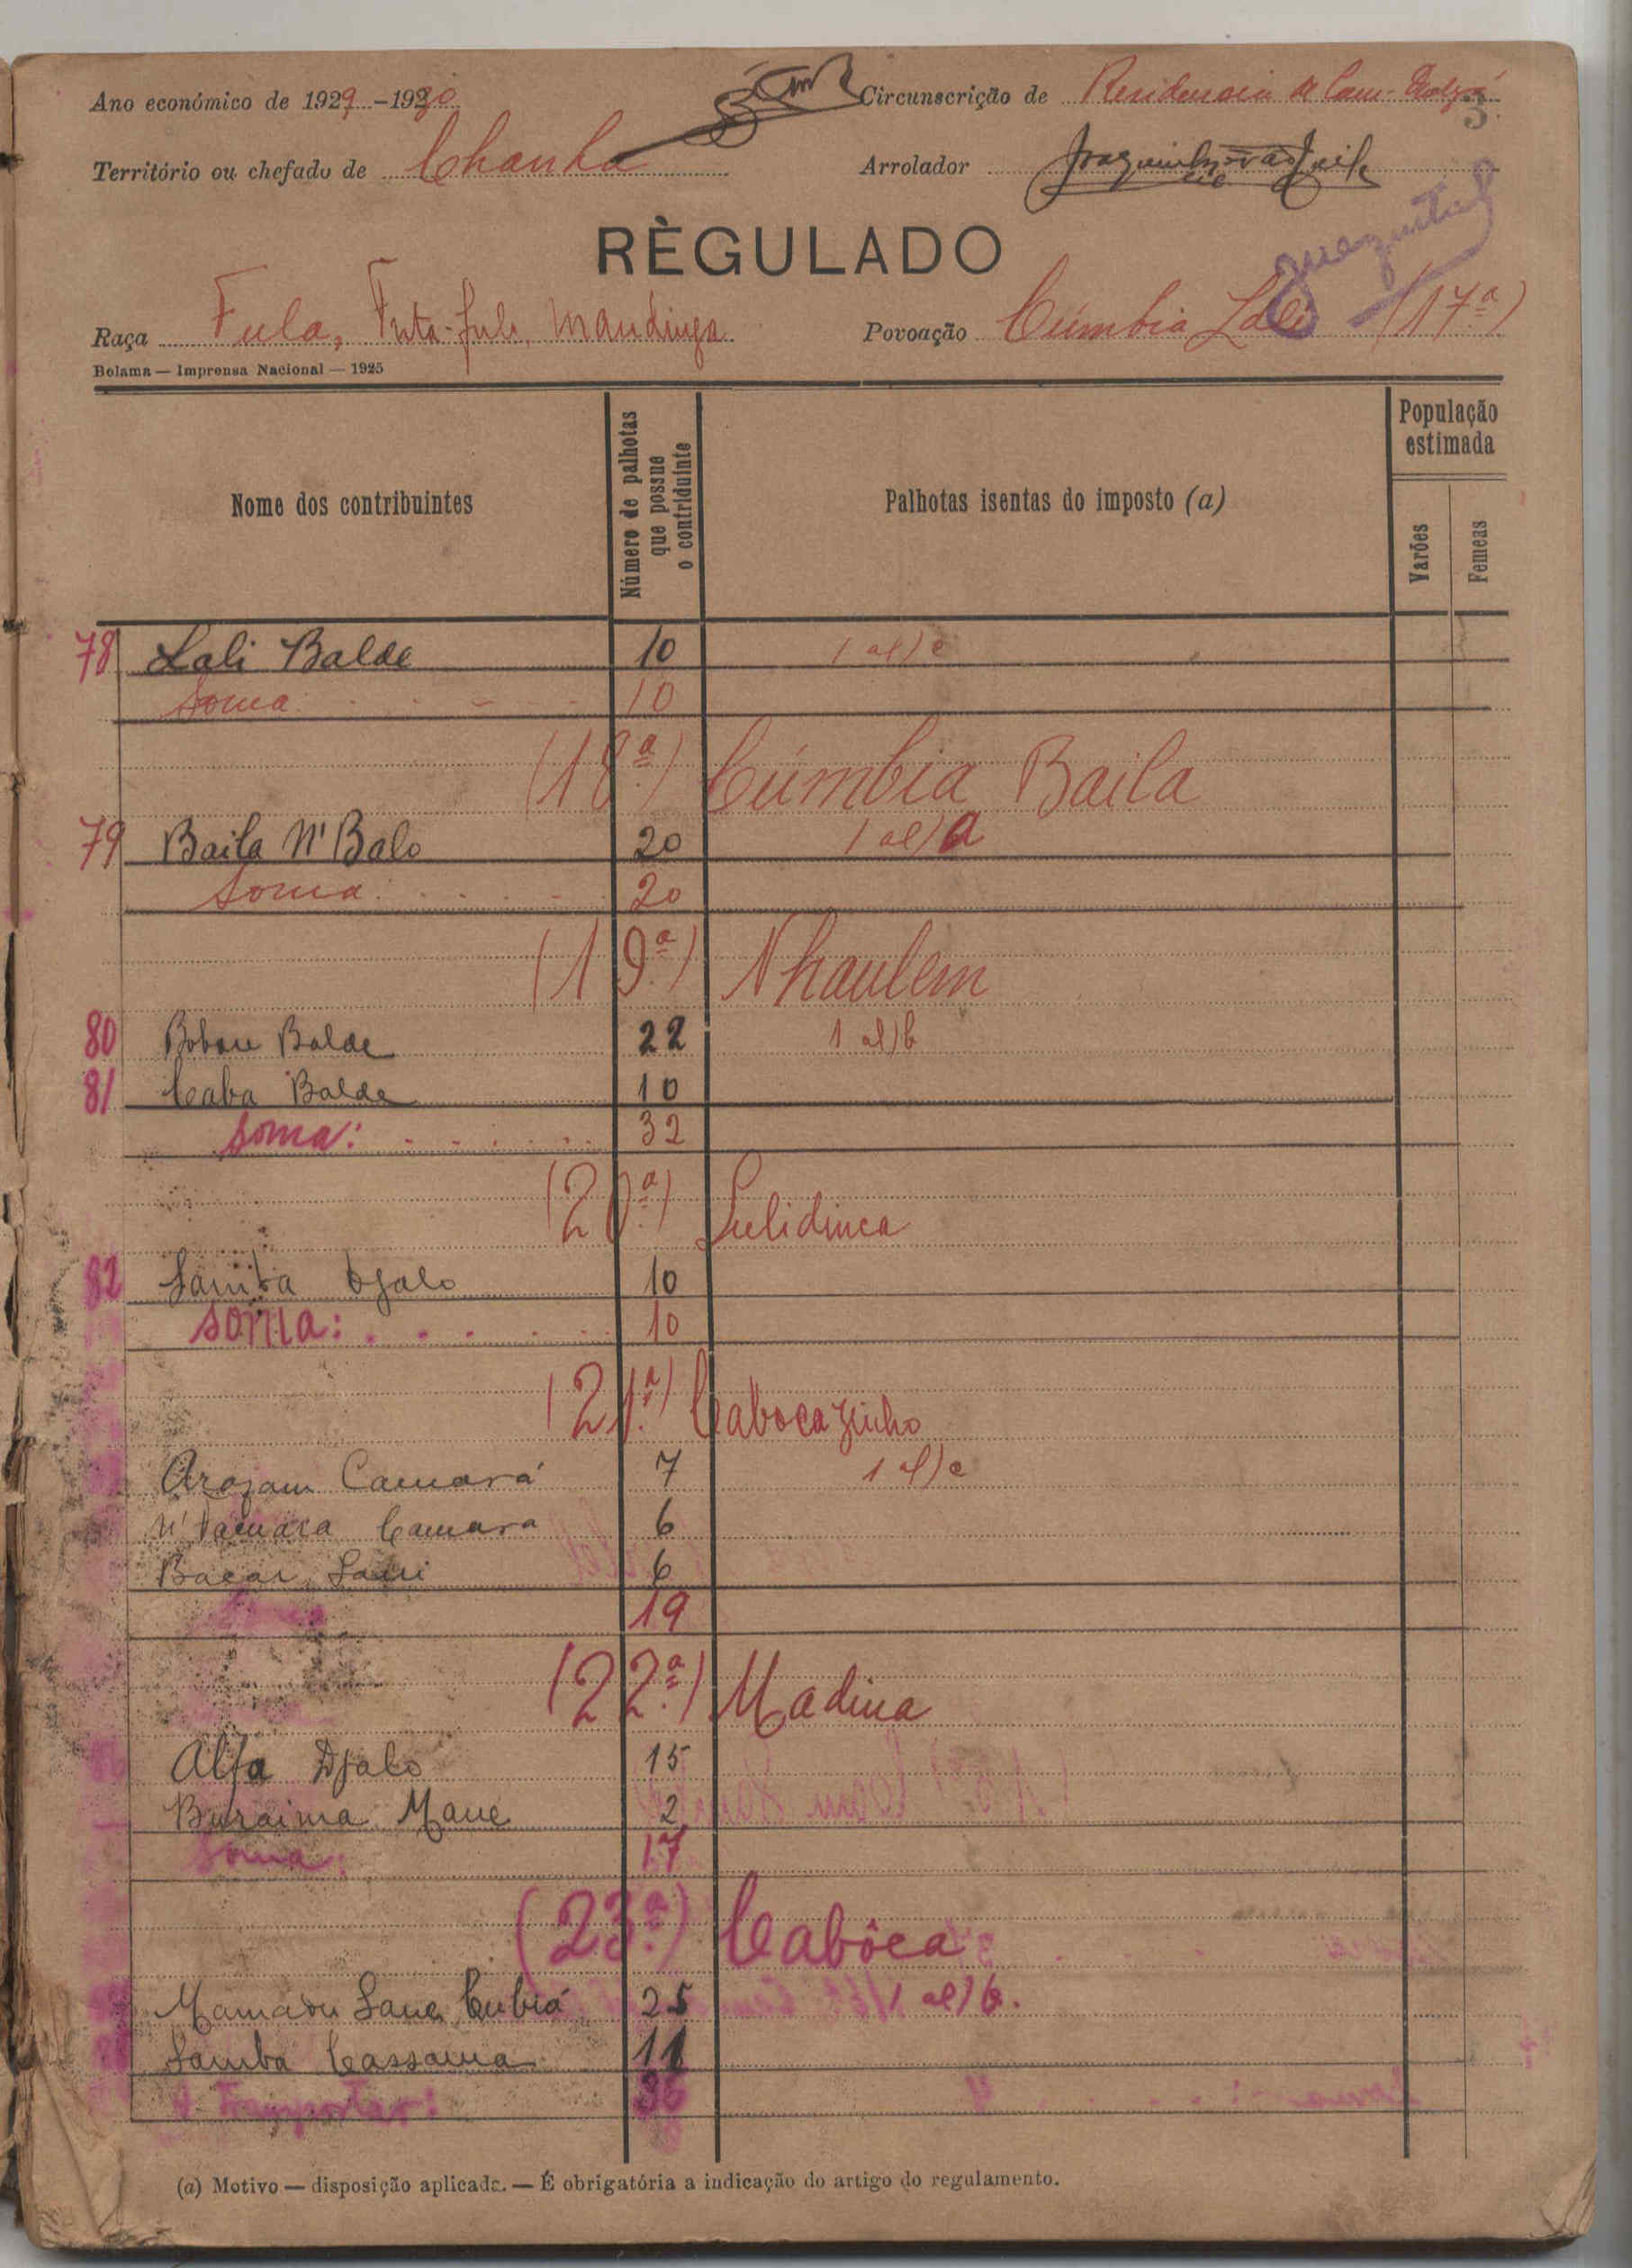 Ano económico de 1929 - 1930 Circunscrição de Residencia de
3
Território ou chefado de Chanha Arrolador
RÈGULADO
Raça Fula, Futa-fula, Mandinga Povoação Cúmbia Lali (17ª)
Bolama — Imprensa Nacional — 1925
Nome dos contribuintes
Número de palhotas que possue o contriduinte
Palhotas isentas do imposto (a)
População estimada
Varões
Femeas
78 Lali Balde 10 1 al) c
Soma 10
(18ª) Cúmbia Baila
79 Baila N'Balo 20 1 al) a
Soma: 20
(19ª) Nhaulem
80 Balde 22 1 al) b
81 Caba Balde 10
Soma: 32
(20ª) Lulidinca
82 Samba Djalo 10
Soma: 10
(21ª) Cabocazinho
Camará 7 1 al) c
Camara 6
Bacar 6
19
(22ª) Madina
Alfa Djalo 15
Buraima Mane 2
Soma: 17
(23ª) Cabôca
Mamadu Sane Cubiá 25 1 al) b.
Samba Cassama 11
A Transportar: 36
(a) Motivo — disposição aplicada. — É obrigatória a indicação do artigo do regulamento.